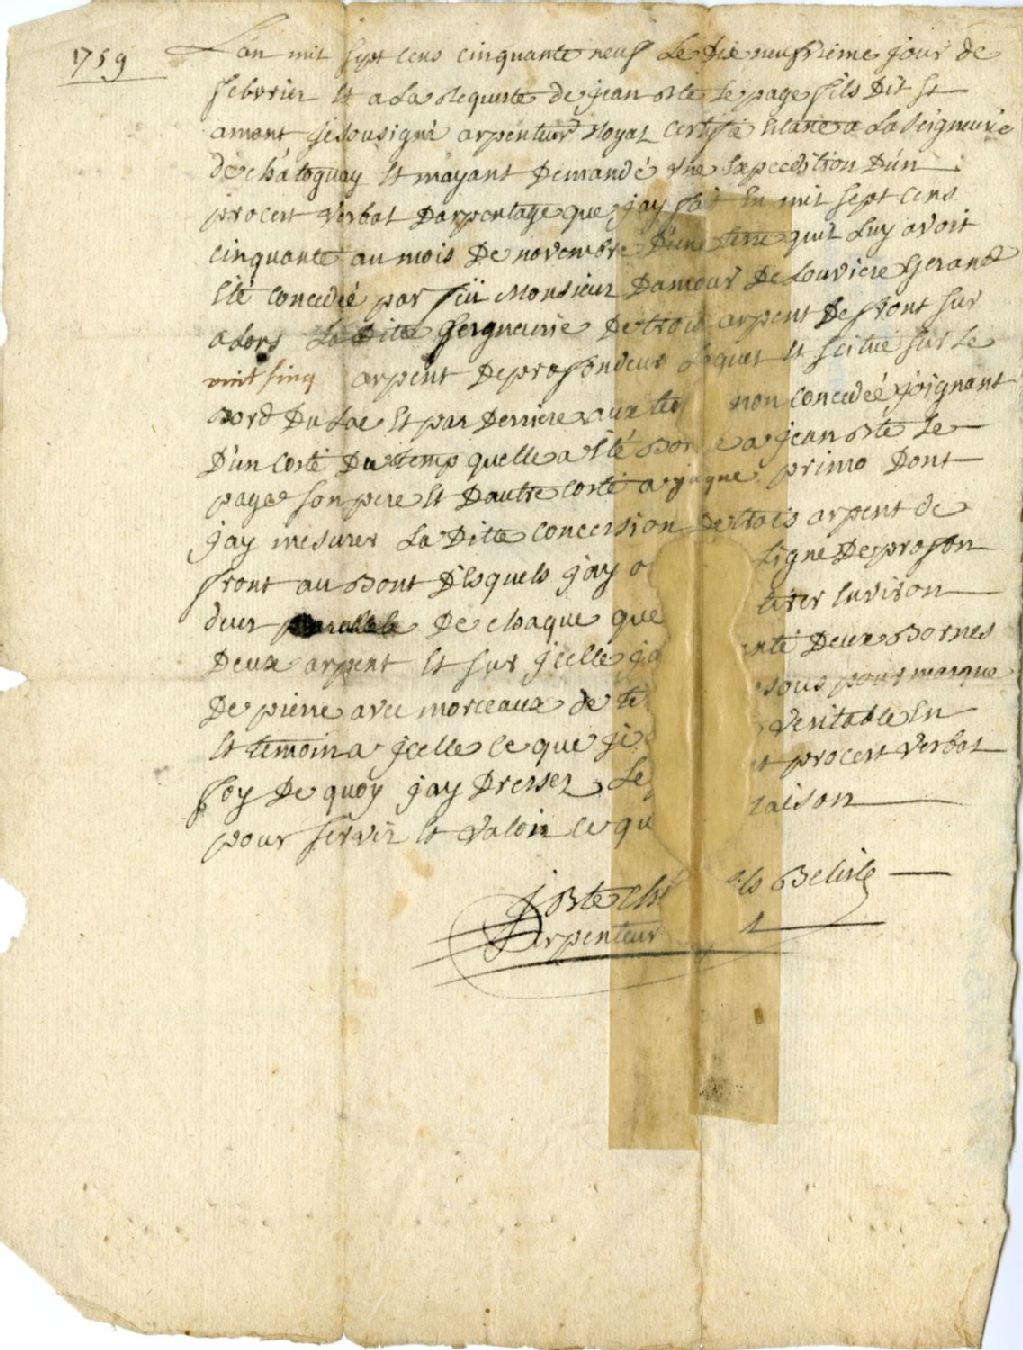 1759
L'an mil sept cens cinquante neuf le dix neufvieme jour de
febvrier et a la Requeste de jean Bte le page fils dit st
amant je sousigné arpenteur Royal Certifié a la seigneurie
de châtoguay et mayant demandé une Expeedition d'un
procert verbal darpentage que jay fait En mil sept cens
cinquante au mois de novembre d'une terre quil luy avoit
Eté concedeé par feü Monsieur Damour De Louviere gerand
alors La Dite seigneurie De trois arpent De front sur
vint sinq arpent De profondeur Lequel Et scitué sur le
bord Du Lac Et par Derriere aux ter non concedeé joignant
D'un costé Du temp quelle a Eté Bor é a jean Bte Le
page son pere Et D'autre costé a primo Dont
jay mesurer La Dite concession de trois arpent de
front au Bout Desquels jay ligne De profon
deur De chaque que tirer Environ
Deux arpent Et sur jcelle ja nté Deux Bornes
De pierre avec morceaux de te sous pour marque
Et temoin a jcelle ce que je veritable En
foy De quoy jay Dresser Le procert verbal
pour servir Et valoir ce qu Raison
j Bte Ch ls Belisle
arpenteur